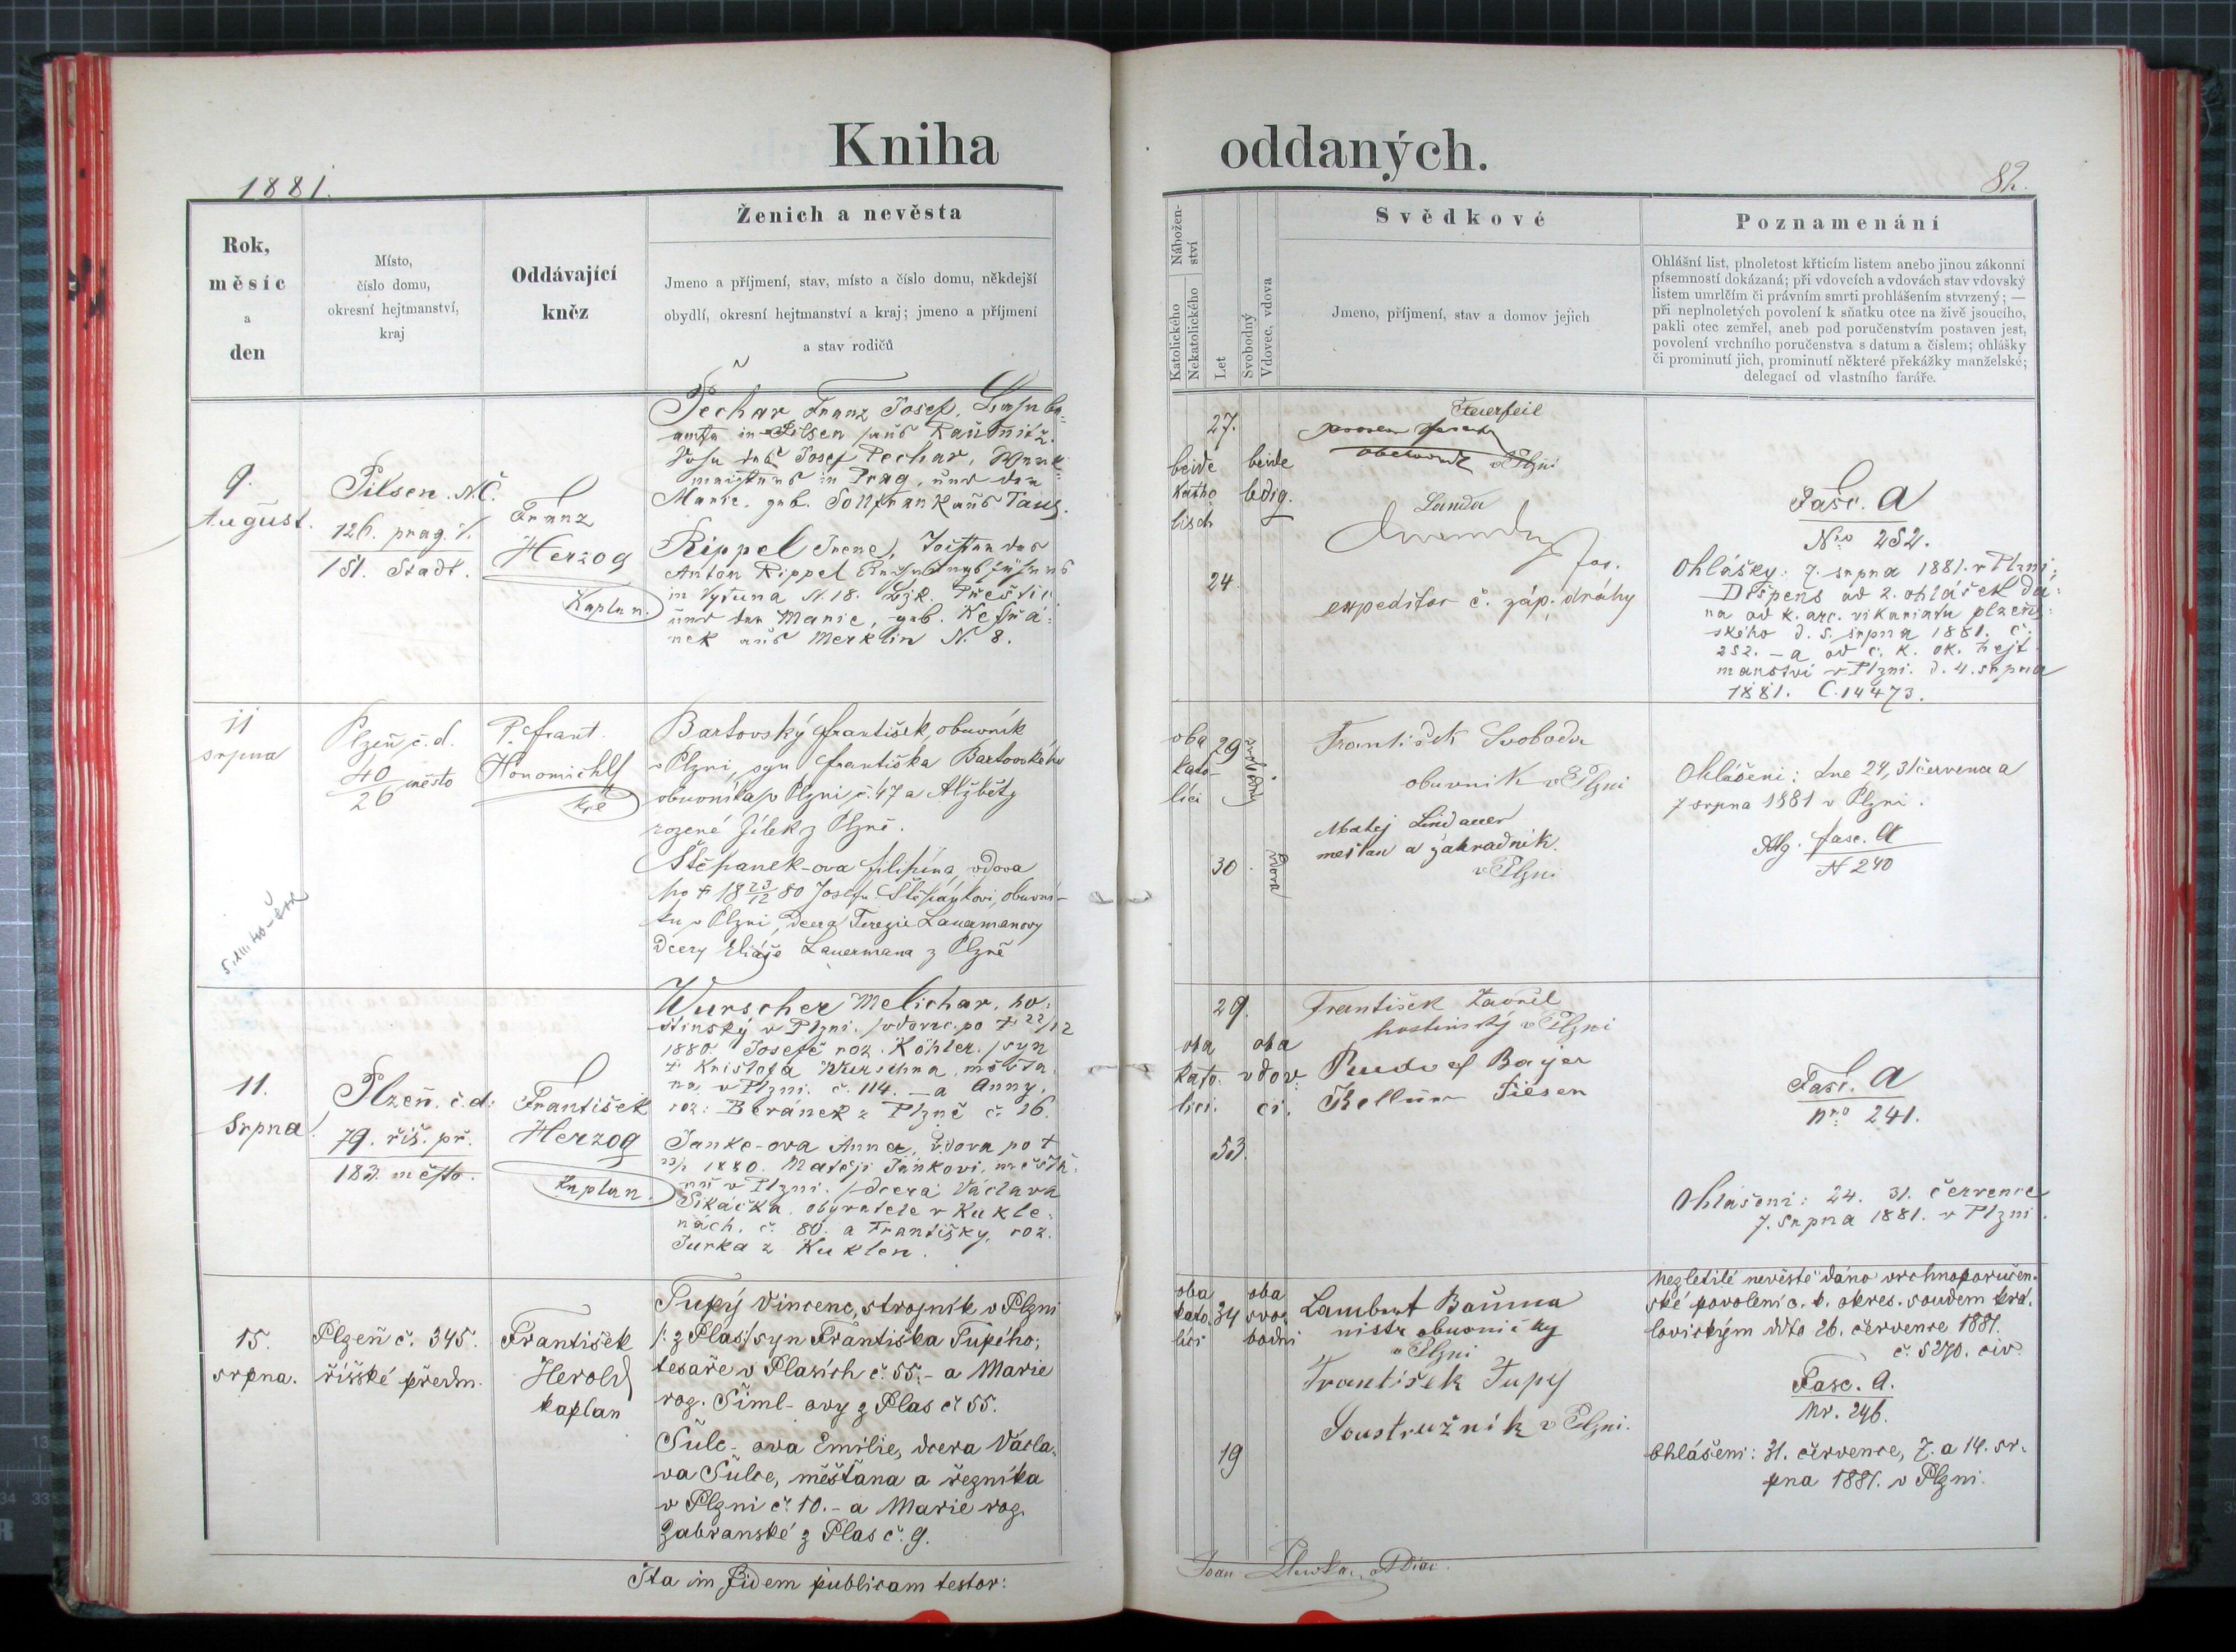 Kniha oddaných.
1881.
82.
Rok,
měsíc
a
den
Místo,
číslo domu,
okresní hejtmanství,
kraj
Oddávající
kněz
Ženich a nevěsta
Jmeno a příjmení, stav, místo a číslo domu, někdejší
obydlí, okresní hejtmanství a kraj; jmeno a příjmení
a stav rodičů
Nábožen-
ství
Katolického
Nekatolického
Let
Svobodný
Vdovec, vdova
Svědkové
Jmeno, příjmení, stav a domov jejich
Poznamenání
Ohlášní list, plnoletost křticím listem anebo jinou zákonní
písemností dokázaná; při vdovcích a vdovách stav vdovský
listem umrlčím či právním smrti prohlášením stvrzený; —
při neplnoletých povolení k sňatku otce na živě jsoucího,
pakli otec zemřel, aneb pod poručenstvím postaven jest,
povolení vrchního poručenstva s datum a číslem; ohlášky
či prominutí jich, prominutí některé překážky manželské;
delegací od vlastního faráře.
9.
August.
Pilsen. N.C.
126. prag. V.
151. Stadt.
Franz
Herzog
Kaplan.
Pechar Franz Josef,
in Pilsen /aus Raudnitz.
Sohn des Josef Pechar,
in Prag, und der
Marie, geb. Sollfrank aus Taus.
Rippel Irene, Tochter des
Anton Rippel
in Vytuna N. 18. Bzk. Přeštic
und der Marie, geb.
nek aus Merklin N. 8.
27.
beide
katho
lisch
beide
ledig.
24.
Steuerfeil
v Plzni
Landa
Jos.
expeditor č. záp. dráhy
Fasc. A
Nro 252.
Ohlášky: 7. srpna 1881. v Plzni;
Dispens od 2. ohlášek dá-
na od k. arc. vikariatu plzeň-
ského d. 5. srpna 1881. č.
252. – a od c. k. ok. hejt-
manství v Plzni. d. 4. srpna
1881. Č. 14473.
11
srpna
Plzeň č. d.
40
26 město
P. Frant.
Honomichl
kně
Bartovský František, obuvník
v Plzni, syn Františka Bartovského
obuvníka v Plzni č. 47 a Alžběty
rozené Jílek z Plzně.
Štěpanek-ova Filipina, vdova
po † 18 23/12 80 Josefu Štěpánkovi, obuvní-
ku v Plzni, dcera Terezie Lauermanovy
dcery Eliáše Lauermana z Plzně
oba
kato-
líci
29
svobodný
30
vdova
František Svoboda
obuvnik v Plzni
Matej Lindauer
mešťan a zahradník.
v Plzni
Ohlášeni: dne 24, 31 července a
7 srpna 1881 v Plzni.
Alg. fasc. A
N 240
11.
Srpna.
Plzeň. č.d:
79. říš. př.
183. město.
František
Herzog
Kaplan.
Wurscher Melichar, ho-
stinský v Plzni. /vdovec po † 22/12
1880. Josefě roz. Köhler. /syn
† Krištofa Wurschra, měšťa-
na v Plzni. č. 114. – a Anny,
roz: Beránek z Plzně č. 16.
Janke-ova Anna, vdova po †
23/1 1880. Matěji Jankovi, měšťa-
nu v Plzni. /dcera Václava
Sikáčka, obyvatele v Kukle-
nách. č. 80. a Františky, roz.
Jurka z Kuklen.
29.
oba
kato-
líci.
oba
vdov-
ci.
53.
František Zavřel
hostinský v Plzni
Rudolf Bayer
Kellner Pilsen
Fasc. A
nro 241.
Ohlášeni: 24. 31. července
7. srpna 1881. v Plzni.
15.
srpna.
Plzeň č. 345.
říšské předm.
František
Herold
kaplan
Tupý Vincenc, strojník v Plzni
/: z Plas/ syn Františka Tupého,
tesaře v Plasích č. 55. – a Marie
roz. Šiml-ovy z Plas č. 55.
Šulc-ova Emilie, dcera Václa-
va Šulce, měšťana a řezníka
v Plzni č. 10. – a Marie roz.
Zabranské z Plas č. 9.
oba
kato
líci
34
oba
svo-
bodni
19
Lambert Bauma
mistr obuvnický
v Plzni
František Tupý
Soustružník v Plzni.
Nezletilé nevěstě dáno vrchnoporučen-
ské povolení c. k. okres. soudem krá-
lovickým ddto 26. července 1881.
č. 5270. civ.
Fasc. A.
Nr. 246.
Ohlášeni: 31. července, 7. a 14. sr-
pna 1881. v Plzni.
Ita in fidem publicam testor: